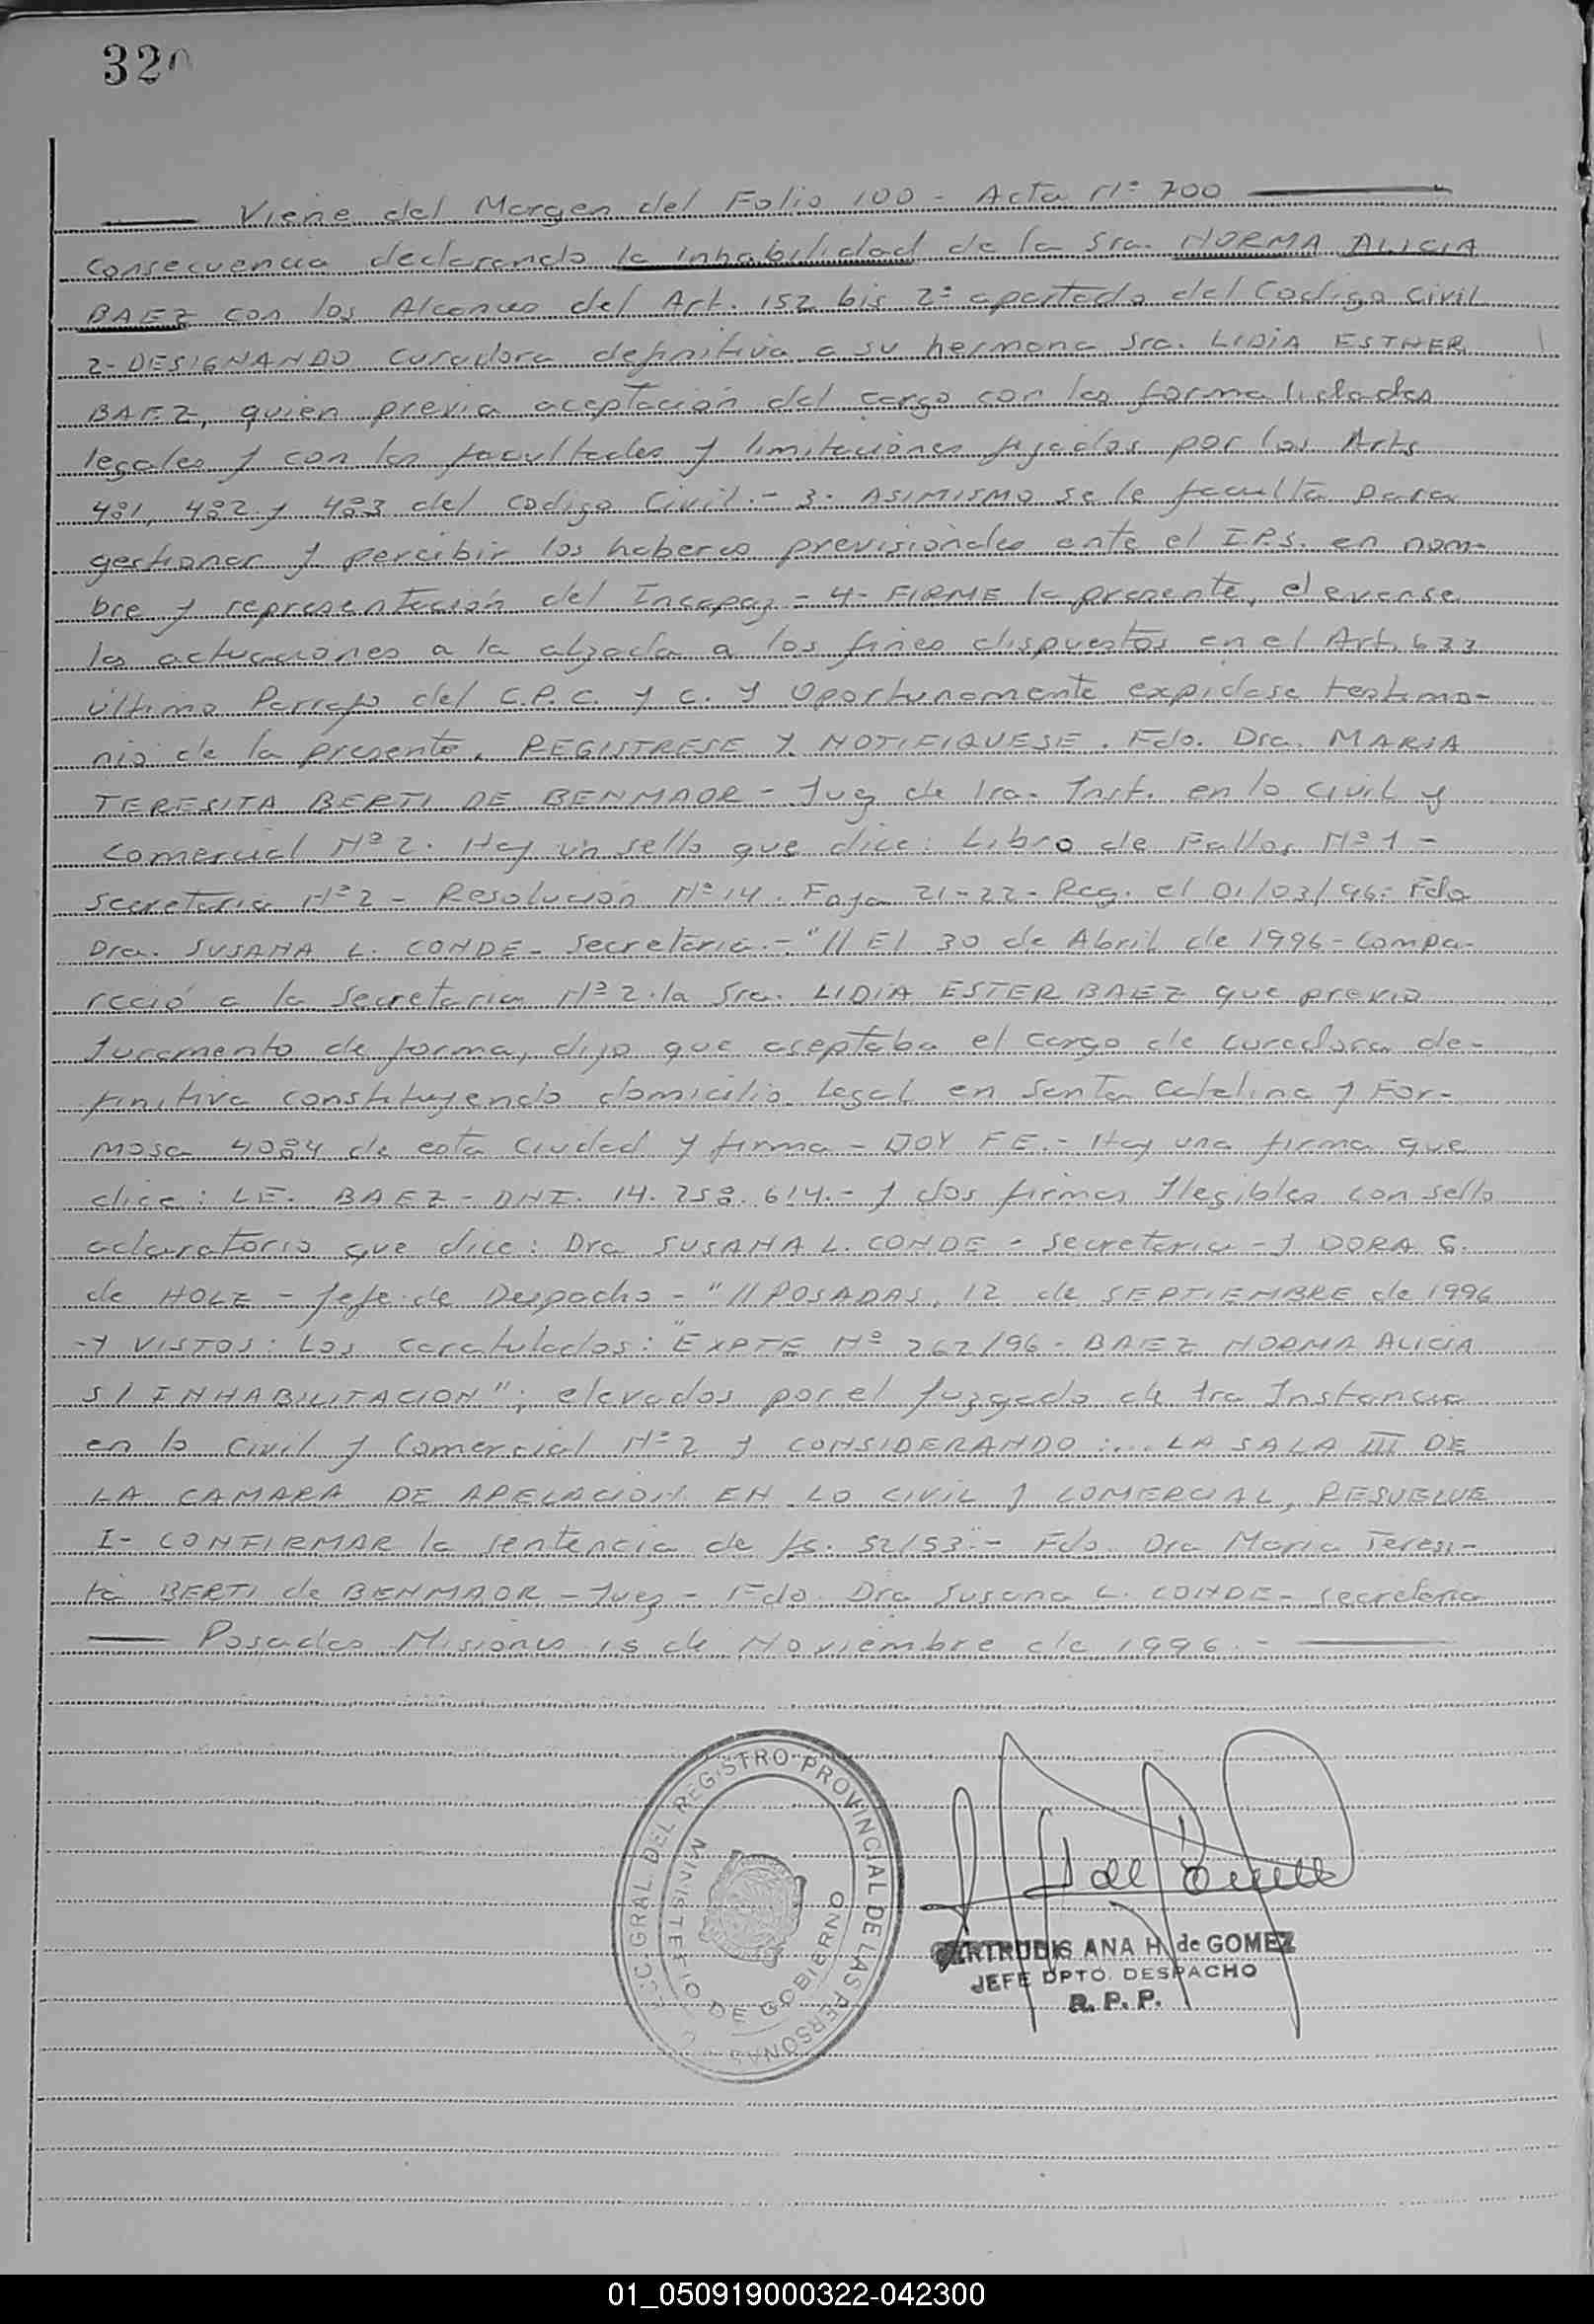 320
Viene del Margen del Folio 100 - Acta Nº 700
Consecuencia declarando la inhabilidad de la Sra. NORMA ALICIA
BAEZ con los Alcances del Art. 152 bis 2º apartado del Codigo Civil
2- DESIGNANDO Curadora definitiva a su hermana Sra. LIDIA ESTHER
BAEZ, quien previa aceptación del cargo con las formalidades
legales y con las facultades y limitaciones fijadas por los Arts
481, 482 y 483 del Codigo Civil.- 3- ASIMISMO se le faculta para
gestionar y percibir los haberes previsionales ante el I.P.S. en nom-
bre y representación del Incapaz - 4- FIRME la presente, elevense
las actuaciones a la alzada a los fines dispuestos en el Art. 633
último Parrafo del C.P.C. y C. y Oportunamente expidase testimo-
nio de la presente. REGISTRESE Y NOTIFIQUESE. Fdo. Dra. MARIA
TERESITA BERTI DE BENMAOR - Juez de 1ra. Inst. en lo Civil y
Comercial Nº 2. Hay un sello que dice: Libro de Fallos Nº 1 -
Secretaria Nº 2 - Resolución Nº 14. Foja 21-22- Reg. el 01/03/96. Fdo
Dra. SUSANA L. CONDE - Secretaria.- "// El 30 de Abril de 1996 - Compa-
reció a la Secretaria Nº 2 la Sra. LIDIA ESTER BAEZ que previo
Juramento de forma, dijo que aceptaba el cargo de curadora de-
finitiva constituyendo domicilio Legal en Santa Catalina y For-
mosa 4084 de esta Ciudad y firma - DOY FE.- Hay una firma que
dice: L.E. BAEZ - DNI. 14.258.614.- y dos firmas Ilegibles con sello
aclaratorio que dice: Dra SUSANA L. CONDE - Secretaria - y DORA G.
de HOLZ - Jefe de Despacho - "// POSADAS, 12 de SEPTIEMBRE de 1996
-Y VISTOS: Los caratulados: "EXPTE Nº 262/96 - BAEZ NORMA ALICIA
S/ INHABILITACION"; elevados por el Juzgado de 1ra Instancia
en lo Civil y Comercial Nº 2 y CONSIDERANDO:... LA SALA III DE
LA CAMARA DE APELACION EN LO CIVIL Y COMERCIAL, RESUELVE
I- CONFIRMAR la sentencia de fs. 52/53.- Fdo. Dra Maria Teresi-
ta BERTI de BENMAOR - Juez - Fdo. Dra Susana L. CONDE - Secretaria
Posadas Misiones 15 de Noviembre de 1996.-
GRAL. DEL REGISTRO PROVINCIAL DE LAS PERSONAS
MINISTERIO DE GOBIERNO
GERTRUDIS ANA H. de GOMEZ
JEFE DPTO. DESPACHO
R. P. P.
01_050919000322-042300